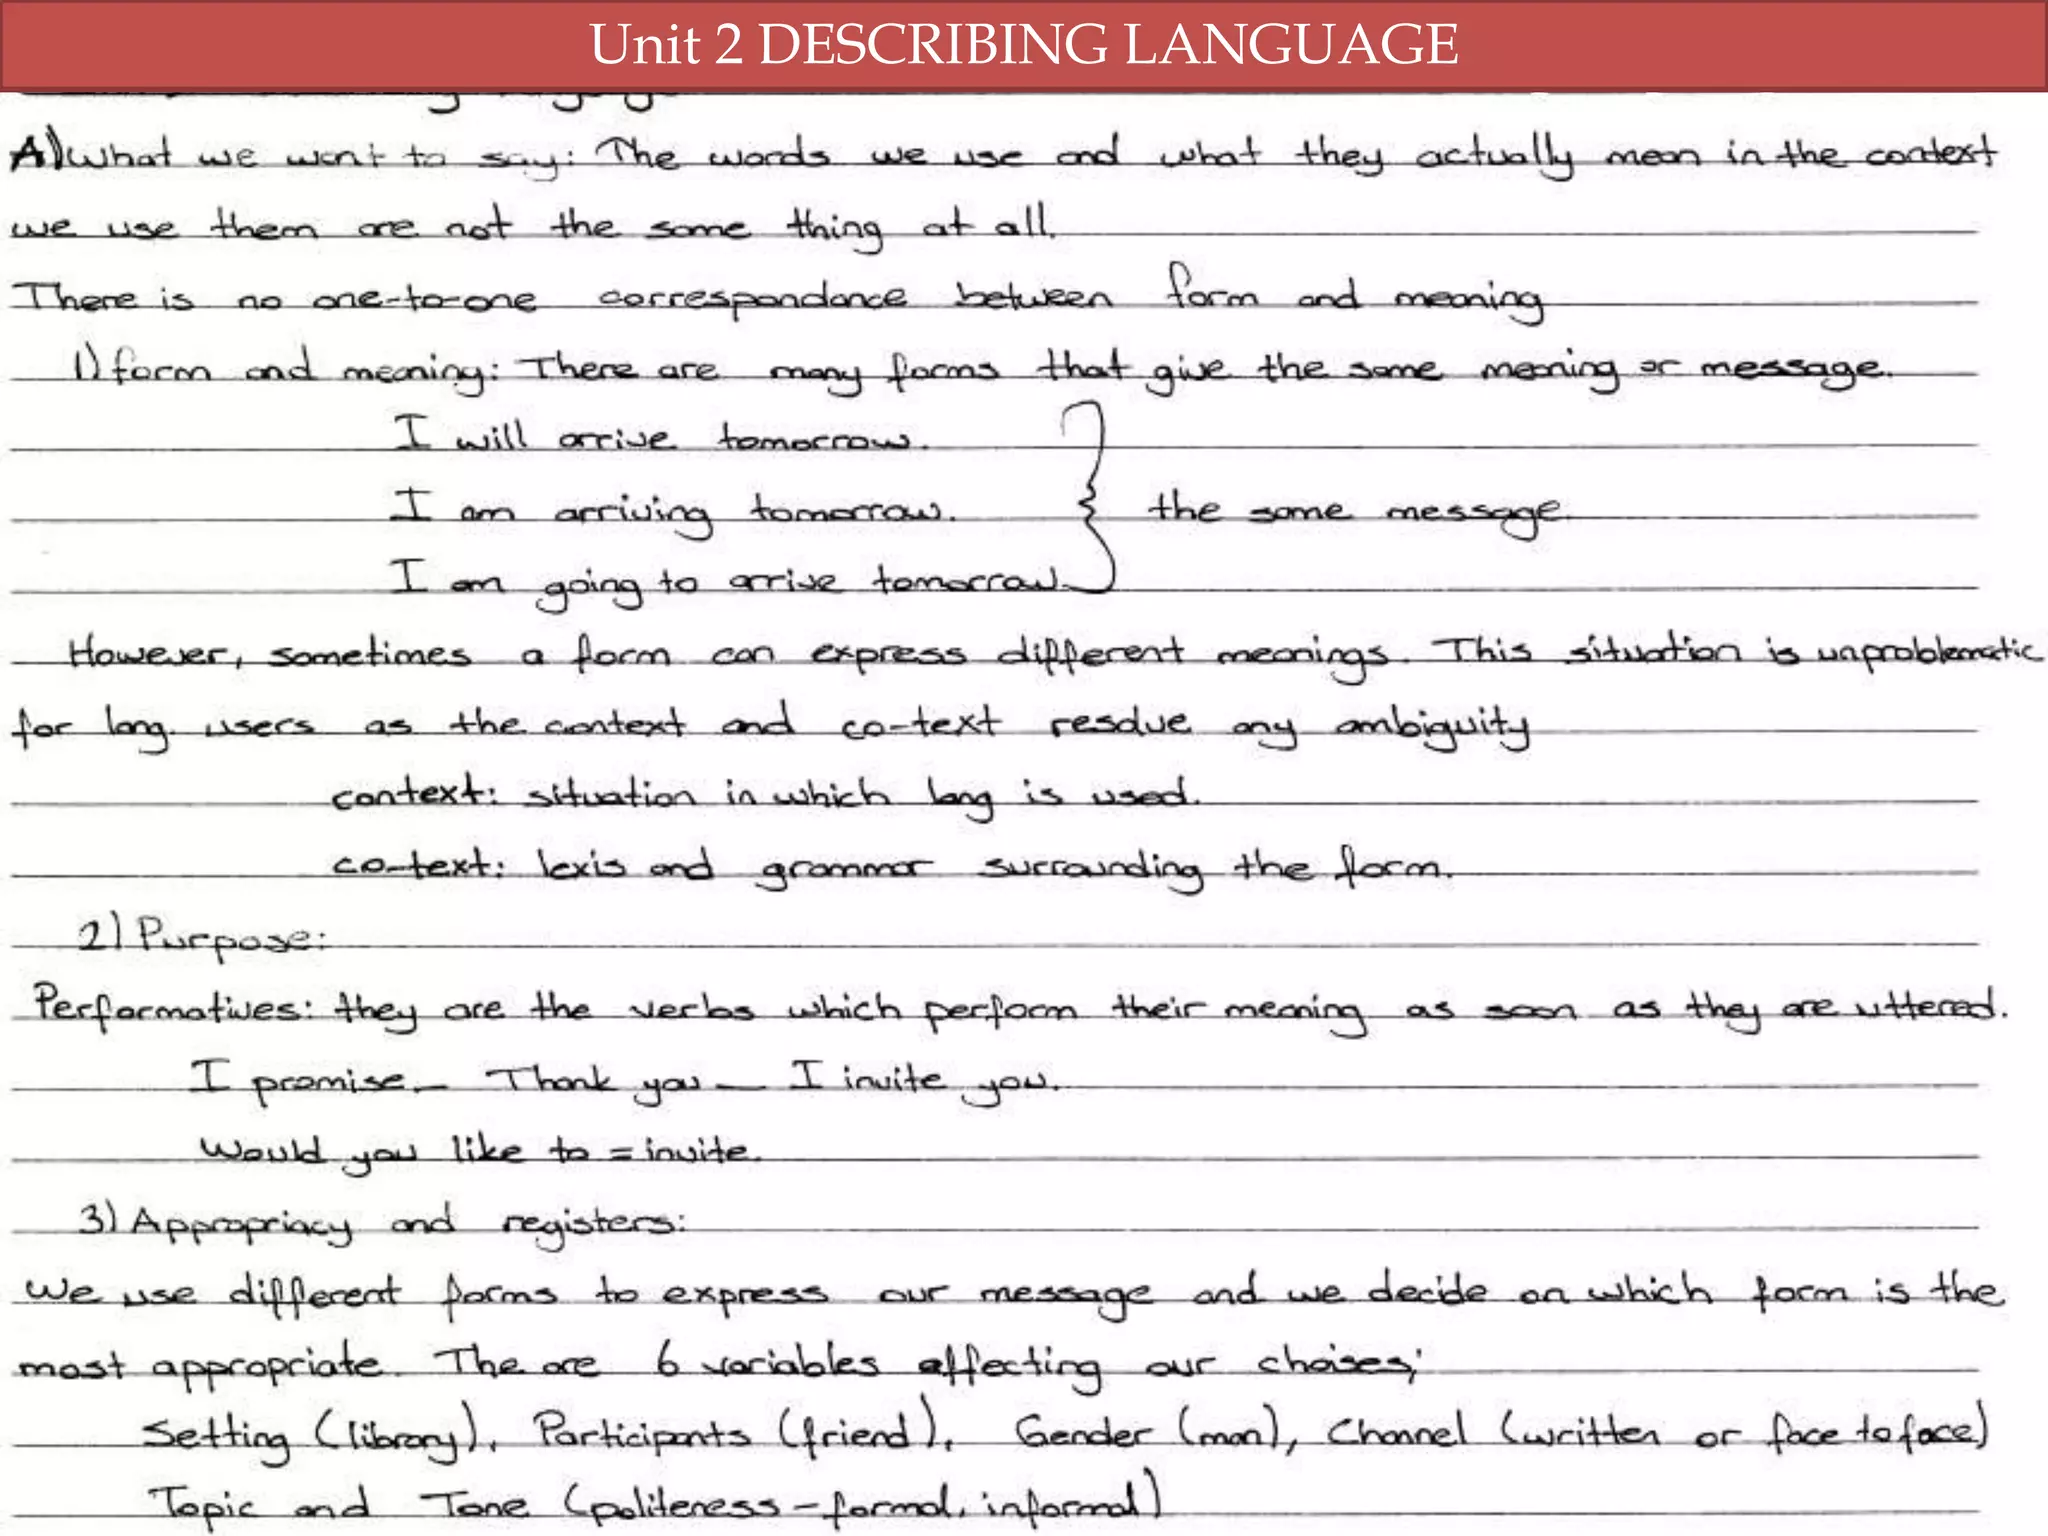 Unit 2 DESCRIBING LANGUAGE
A) What we want to say: The words we use and what they actually mean in the context
we use them are not the same thing at all.
There is no one-to-one correspondance between form and meaning
1) form and meaning: There are many forms that give the same meaning or message.
I will arrive tomorrow.
I am arriving tomorrow. the same message.
I am going to arrive tomorrow.
However, sometimes a form can express different meanings. This situation is unproblematic
for lang. users as the context and co-text resolve any ambiguity
context: situation in which lang is used.
co-text: lexis and grammar surrounding the form.
2) Purpose:
Performatives: they are the verbs which perform their meaning as soon as they are uttered.
I promise – Thank you – I invite you.
Would you like to = invite.
3) Appropriacy and registers:
We use different forms to express our message and we decide on which form is the
most appropriate. The are 6 variables affecting our choises;
Setting (library), Participants (friend), Gender (man), Channel (written or face to face)
Topic and Tone (politeness – formal, informal)